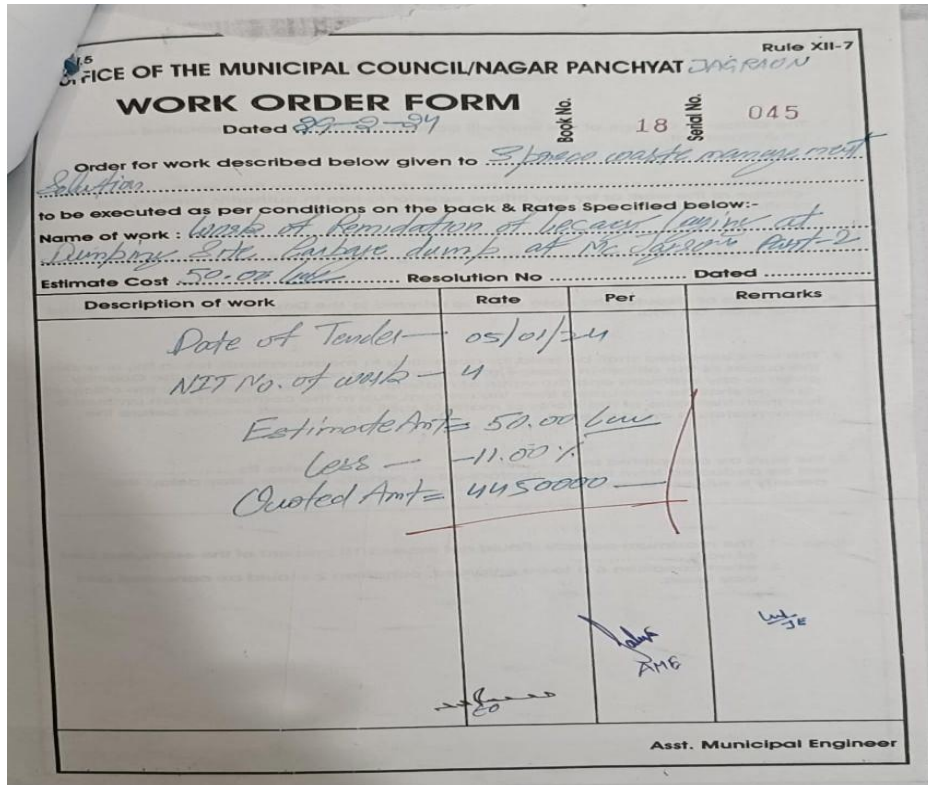 Rule XII-7
OFFICE OF THE MUNICIPAL COUNCIL/NAGAR PANCHYAT JAGRAON
WORK ORDER FORM
Book No. 18 Serial No. 045
Dated 29-2-24
Order for work described below given to waste management
Solution
to be executed as per conditions on the back & Rates Specified below:-
Name of work : Work of Remidation of at
Dumping Site dump at Mc Part-2
Estimate Cost 50.00 Resolution No Dated
Description of work Rate Per Remarks
Date of Tender — 05/01/24
NIT No. of work — 4
Estimate Amt = 50.00
Less — -11.00 %
Quoted Amt = 4450000 —
JE
AME
EO
Asst. Municipal Engineer